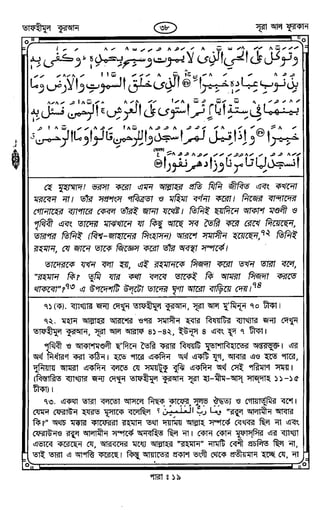 তাফহীমুল কুরআন ৩৮ সূরা আল ফুরকান
وَتَوَكَّلْ عَلَى الْحَيِّ الَّذِي لَا يَمُوتُ وَسَبِّحْ بِحَمْدِهِ ۚ وَكَفَىٰ بِهِ
بِذُنُوبِ عِبَادِهِ خَبِيرًا ۞ الَّذِي خَلَقَ السَّمٰوٰتِ وَالْأَرْضَ وَمَا
بَيْنَهُمَا فِي سِتَّةِ أَيَّامٍ ثُمَّ اسْتَوَىٰ عَلَى الْعَرْشِ ۚ الرَّحْمٰنُ فَسْـَٔلْ بِهِ
خَبِيرًا ۞ وَإِذَا قِيلَ لَهُمُ اسْجُدُوا لِلرَّحْمٰنِ قَالُوا وَمَا الرَّحْمٰنُ ۚ
أَنَسْجُدُ لِمَا تَأْمُرُنَا وَزَادَهُمْ نُفُورًا ۞
হে মুহাম্মাদ! ভরসা করো এমন আল্লাহর প্রতি যিনি জীবিত এবং কখনো
মরবেন না। তাঁর সপ্রশংস পবিত্রতা ও মহিমা বর্ণনা করো। নিজের বান্দাদের
গোনাহের ব্যাপারে কেবল তাঁরই জানা যথেষ্ট। তিনিই ছয়দিনে আকাশ মণ্ডলী ও
পৃথিবী এবং তাদের মাঝখানে যা কিছু আছে সব তৈরি করে রেখে দিয়েছেন,
তারপর তিনিই (বিশ্ব-জাহানের সিংহাসন) আরশে সমাসীন হয়েছেন,৭২ তিনিই
রহমান, যে জানে তাকে জিজ্ঞেস করো তাঁর অবস্থা সম্পর্কে।
তাদেরকে যখন বলা হয়, এই রহমানকে সিজদা করো তখন তারা বলে,
"রহমান কি? তুমি যার কথা বলবে তাকেই কি আমরা সিজদা করতে
থাকবো"?৭৩ এ উপদেশটি উল্টো তাদের ঘৃণা আরো বাড়িয়ে দেয়।৭৪
৭১(ক). ব্যাখ্যার জন্য দেখুন তাফহীমুল কুরআন, সূরা আল মু'মিনূন ৭০ টীকা।
৭২. মহান আল্লাহর আরশের ওপর সমাসীন হবার বিষয়টির ব্যাখ্যার জন্য দেখুন
তাফহীমুল কুরআন, সূরা আল আরাফ ৪১-৪২, ইউনূস ৪ এবং হূদ ৭ টীকা।
পৃথিবী ও আকাশমণ্ডলী ছ'দিনে তৈরি করার বিষয়টি মুতাশাবিহাতের অন্তরভুক্ত। এর
অর্থ নির্ধারণ করা কঠিন। হতে পারে একদিন অর্থ একটি যুগ, আবার এও হতে পারে,
দুনিয়ায় আমরা একদিন বলতে যে সময়টুকু বুঝি একদিন অর্থ সেই পরিমাণ সময়।
(বিস্তারিত ব্যাখ্যার জন্য দেখুন তাফহীমুল কুরআন, সূরা হা-মীম-আস্ সাজদাহ ১১-১৫
টীকা)।
৭৩. একথা তারা বলতো আসলে নিছক কাফের সুলভ ঔদ্ধত্য ও গোয়ার্তুমির বশে।
যেমন ফেরাউন হযরত মূসাকে বলেছিল وَمَا رَبُّ الْعٰلَمِينَ ؟ "রব্বুল আলামীন আবার
কি?" অথচ মক্কার কাফেররা রহমান তথা দয়াময় আল্লাহ সম্পর্কে বেখবর ছিল না এবং
ফেরাউনও রব্বুল আলামীন সম্পর্কে অনবহিত ছিল না। কোন কোন মুফাস্সির এর ব্যাখ্যা
এভাবে করেছেন যে, আরবদের মধ্যে আল্লাহর "রহমান" নামটি বেশী প্রচলিত ছিল না,
তাই তারা এ আপত্তি করেছে। কিন্তু আয়াতের প্রকাশ ভংগী থেকে প্রতীয়মান হচ্ছে যে, না
পারা ঃ ১৯